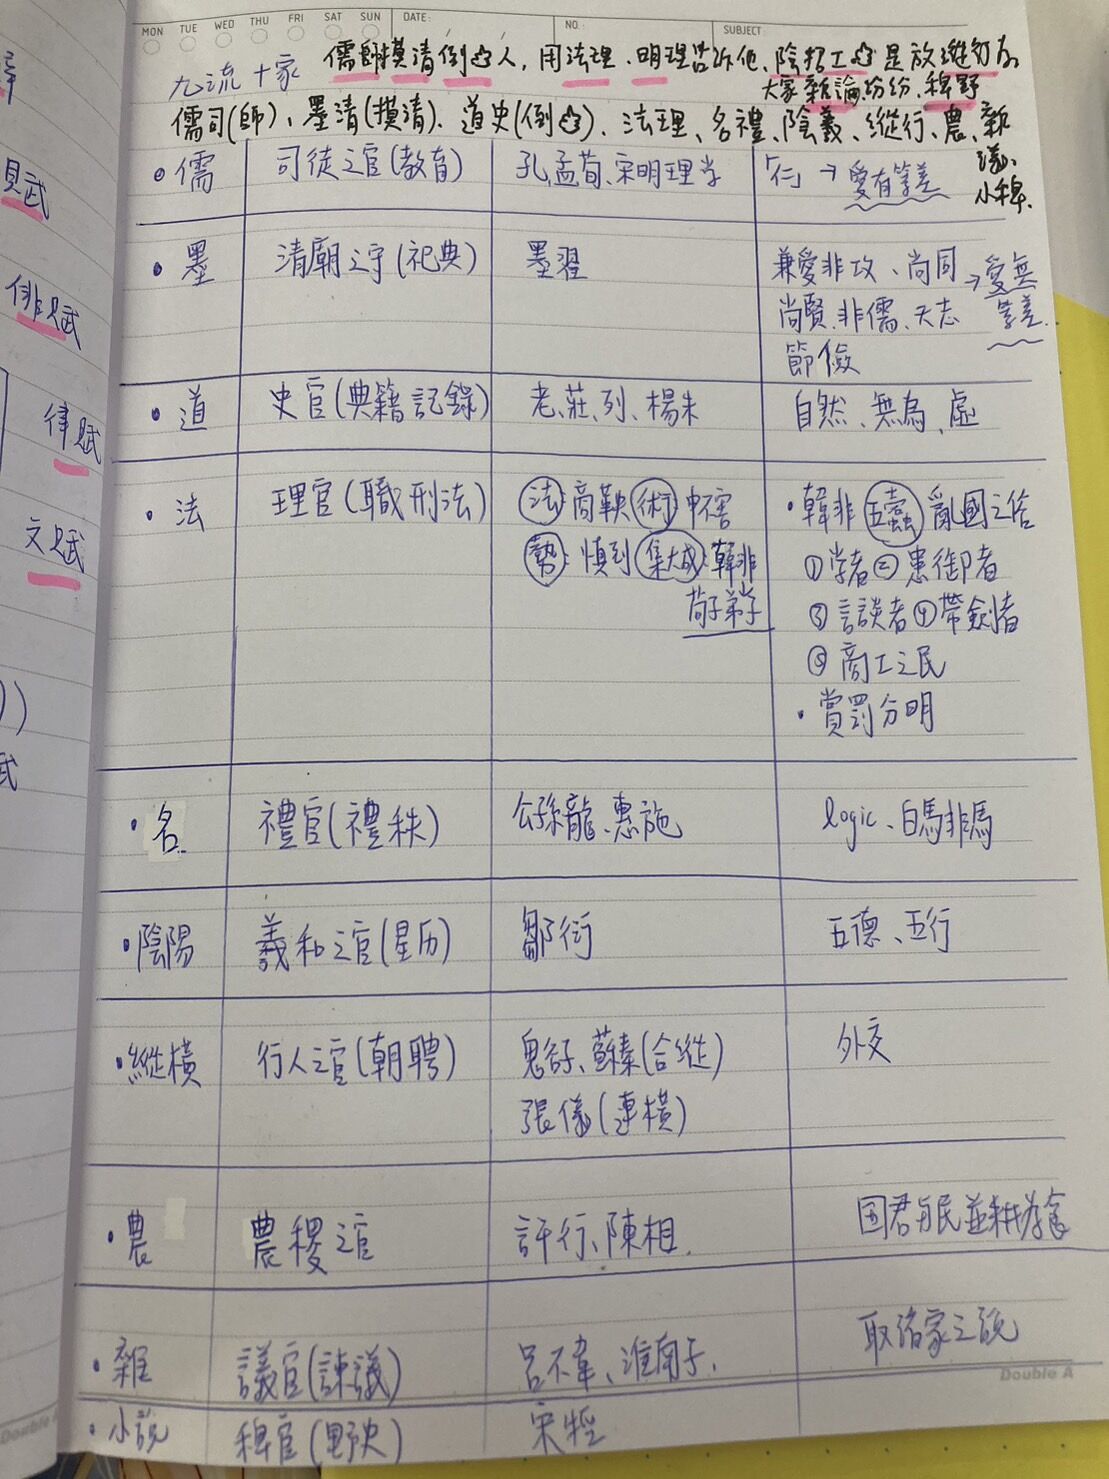 MON TUE WED THU FRI SAT SUN DATE: NO.: SUBJECT:
儒師摸清倒史人,用法理、明理告訴他、陰招工
是放縱行為
九流十家
大家雜論紛紛、稗野
儒司(師)、墨清(摸清)、道史(倒史)、法理、名禮、陰義、縱行、農、雜
議、
小稗.
•儒 司徒之官(教育) 孔孟荀、宋明理学 「仁」→愛有等差
•墨 清廟之守(祀典) 墨翟 兼愛非攻、尚同→愛無
尚賢、非儒、天志 等差.
節儉
•道 史官(典籍記錄) 老、莊、列、楊朱 自然、無為、虛
•法 理官(職刑法) 法:商鞅 術:申不害 •韓非 五蠹 亂國之俗
勢:慎到 集大成:韓非 ①学者②患御者
荀子弟子 ③言談者④帶劍者
⑤商工之民
•賞罰分明
•名 禮官(禮秩) 公孫龍、惠施 logic、白馬非馬
•陰陽 羲和之官(星历) 鄒衍 五德、五行
•縱橫 行人之官(朝聘) 鬼谷子、蘇秦(合縱) 外交
張儀(連橫)
•農 農稷之官 許行、陳相. 国君与民並耕
•雜 議官(諫議) 呂不韋、淮南子. 取諸家之説
Double A
•小說 稗官(野史) 宋牼
貝武
俳賦
律賦
文賦
武
Double A